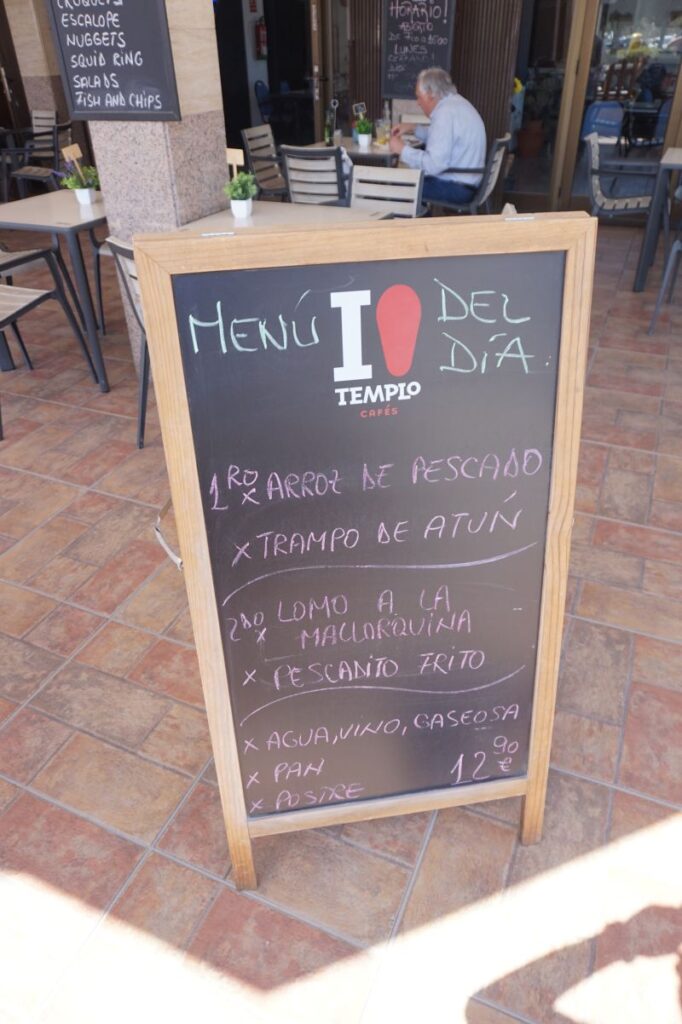 CROQUETS
ESCALOPE
NUGGETS
SQUID RING
SALADS
FISH AND CHIPS
HORARIO!
ABIERTO
LUNES
MENÚ I DEL
DÍA
TEMPLO
CAFÉS
1RO x ARROZ DE PESCADO
x TRAMPO DE ATÚN
2DO x LOMO A LA
MALLORQUINA
x PESCADITO FRITO
x AGUA, VINO, GASEOSA
x PAN 12 90 €
x POSTRE